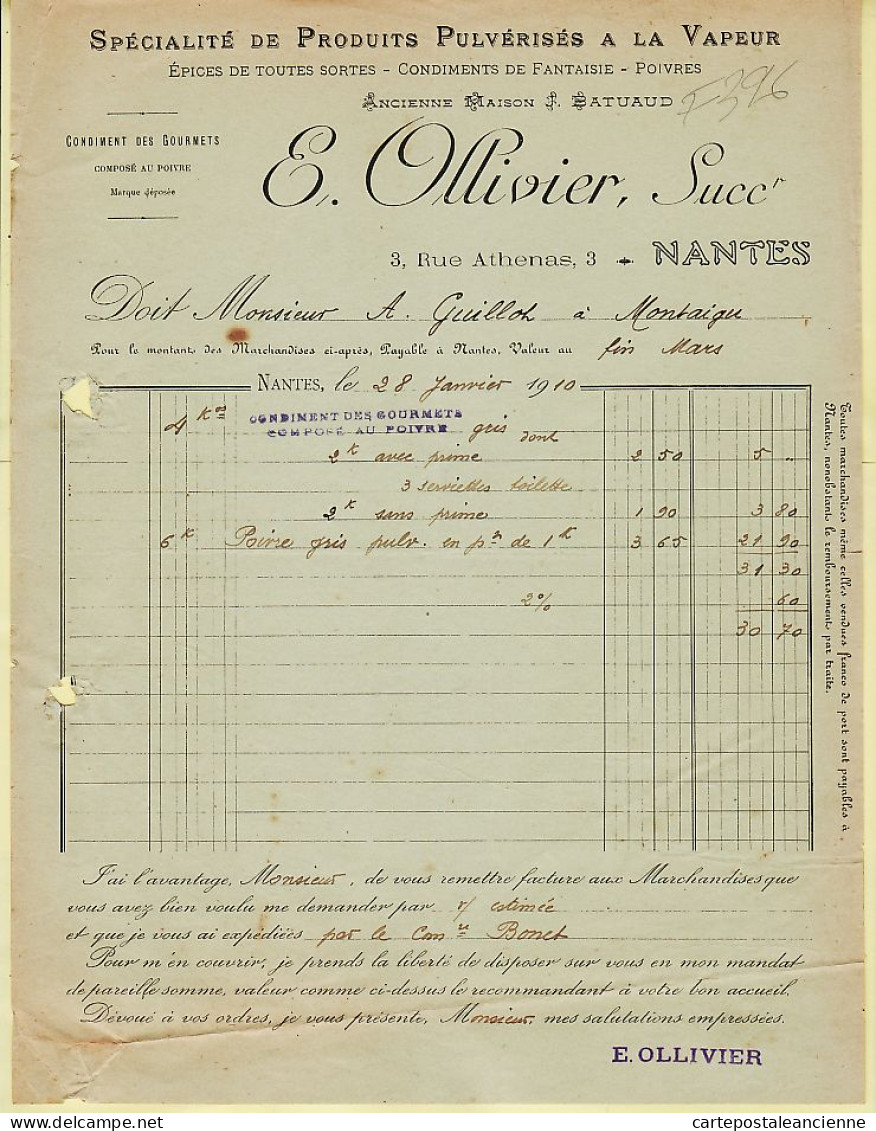 SPÉCIALITÉ DE PRODUITS PULVÉRISÉS A LA VAPEUR
ÉPICES DE TOUTES SORTES - CONDIMENTS DE FANTAISIE - POIVRES
ANCIENNE MAISON J. BATUAUD
CONDIMENT DES GOURMETS
COMPOSÉ AU POIVRE
Marque déposée
E. Ollivier, Succr
3, Rue Athenas, 3 NANTES
Doit Monsieur A. Guillot à Montaigu
Pour le montant des Marchandises ci-après, Payable à Nantes, Valeur au fin Mars
NANTES, le 28 Janvier 1910
4 Kos CONDIMENT DES GOURMETS
COMPOSÉ AU POIVRE gris dont
2k avec prime 2 50 5 "
3 serviettes toilette
2k sans prime 1 90 3 80
6k Poivre gris pulv. en pn de 1k 3 65 21 90
31 30
2% 60
30 70
Toutes marchandises même celles vendues franco de port sont payables à
Nantes, nonobstant le remboursements par traite.
J'ai l'avantage, Monsieur, de vous remettre facture aux Marchandises que
vous avez bien voulu me demander par v/ estimée
et que je vous ai expédiées par le Comre Bonet
Pour m'en couvrir, je prends la liberté de disposer sur vous en mon mandat
de pareille somme, valeur comme ci-dessus le recommandant à votre bon accueil.
Dévoué à vos ordres, je vous présente, Monsieur, mes salutations empressées.
E. OLLIVIER
cartepostaleancienne